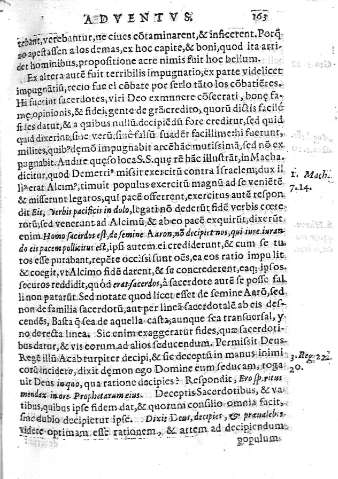 ADVENTVS. 163
tebant, verebantur, ne ciues cōtaminarent, & inficerent. Porq̃
no apestassen a los demas, ex hoc capite, & boni, quod ita arri-
det hominibus, propositione acre nimis fuit hoc bellum.
Ex altera autē fuit terribilis impugnatio, ex parte videlicet
impugnātiū, recio fue el cōbate por serlo tāto los cōbatiēres.
Hi fuerūt sacerdotes, viri Deo exmunere cōsecrati, bonę fa-
mę, opinionis, & fidei, gente de grācredito, quorū dictis facilē
fi les datur, & a quibus nullū decipiēdū fore creditur, sed quid
quid dicerint, siue verū, siue falsū fuadēr facillime: hi fuerunt,
milites, quibᵒ demō impugnabit arcē hāc mutissimā, sed nō ex
pugnabit. Audite quęso loca S.S. quę rē hāc illustrāt, in Macha
dicitur, quod Demetriᵒ misit exercitū contra Israelem, dux il
liᵒ erat Alcimᵒ, timuit populus exercitū magnū ad se veniētē
& misserunt legaros, qui pacē offerrent, exercitus autem respō
dit Eis, Verbis pacificis in dolo, legati nō dederūt fidē verbis cœte-
rorū, sed venerant ad Alcimū & ab eo pacē exquirūt, dixerūt
enim. Homo sacerdos est, de semine Aaron, nō decipiet nos, qui iure iuran-
do eis pacem pollicitus est, ipsū autem ei crediderunt, & cum se tu
tos esse putabant, repēte occissi sunt oēs, ea eos ratio impulit
& coegit, vt Alcimo fidē darent, & se concrederent, eaq; ipsos
securos reddidit, quòd erat sacerdos, à sacerdote autē se posse fal
li non putarūt. Sed notate quod licet esset de semine Aarō, sed
non de familia sacerdotū, aut per lineā sacerdotalē ab eis des-
cendēs, Basta q̃ sea de aquella casta, aunque sea transuersal, y
no derecta linea. Sic enim exaggeratur fides, quæ sacerdoti-
bus datur, & vis eorum ad alios seducendum. Permissit Deus
Regē illū Acab turpiter decipi, & sic deceptū in manus inimi
corū incidere, dixit dęmon ego Domine eum seducam, roga
uit Deus in quo, qua ratione decipies? Respondit, Ero spiritus
mendax in ore Prophetarum eius. Deceptis Sacerdotibus, & va-
tibus, quibus ipse fidem dat, & quorum consilio omnia facit,
sine dubio decipietur ipse. Dixit Deus, decipies, & præualebis
videte optimam esse rationem, & artem ad decipiendum
populum
1. Mach.
7. 14.
3. Reg. 22.
20.